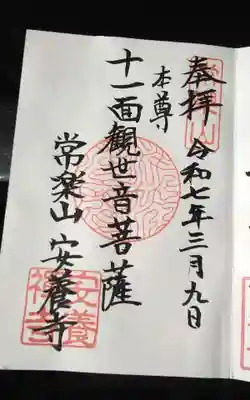 奉拝
令和七年三月九日
本尊
十一面観世音菩薩
常楽山 安養寺